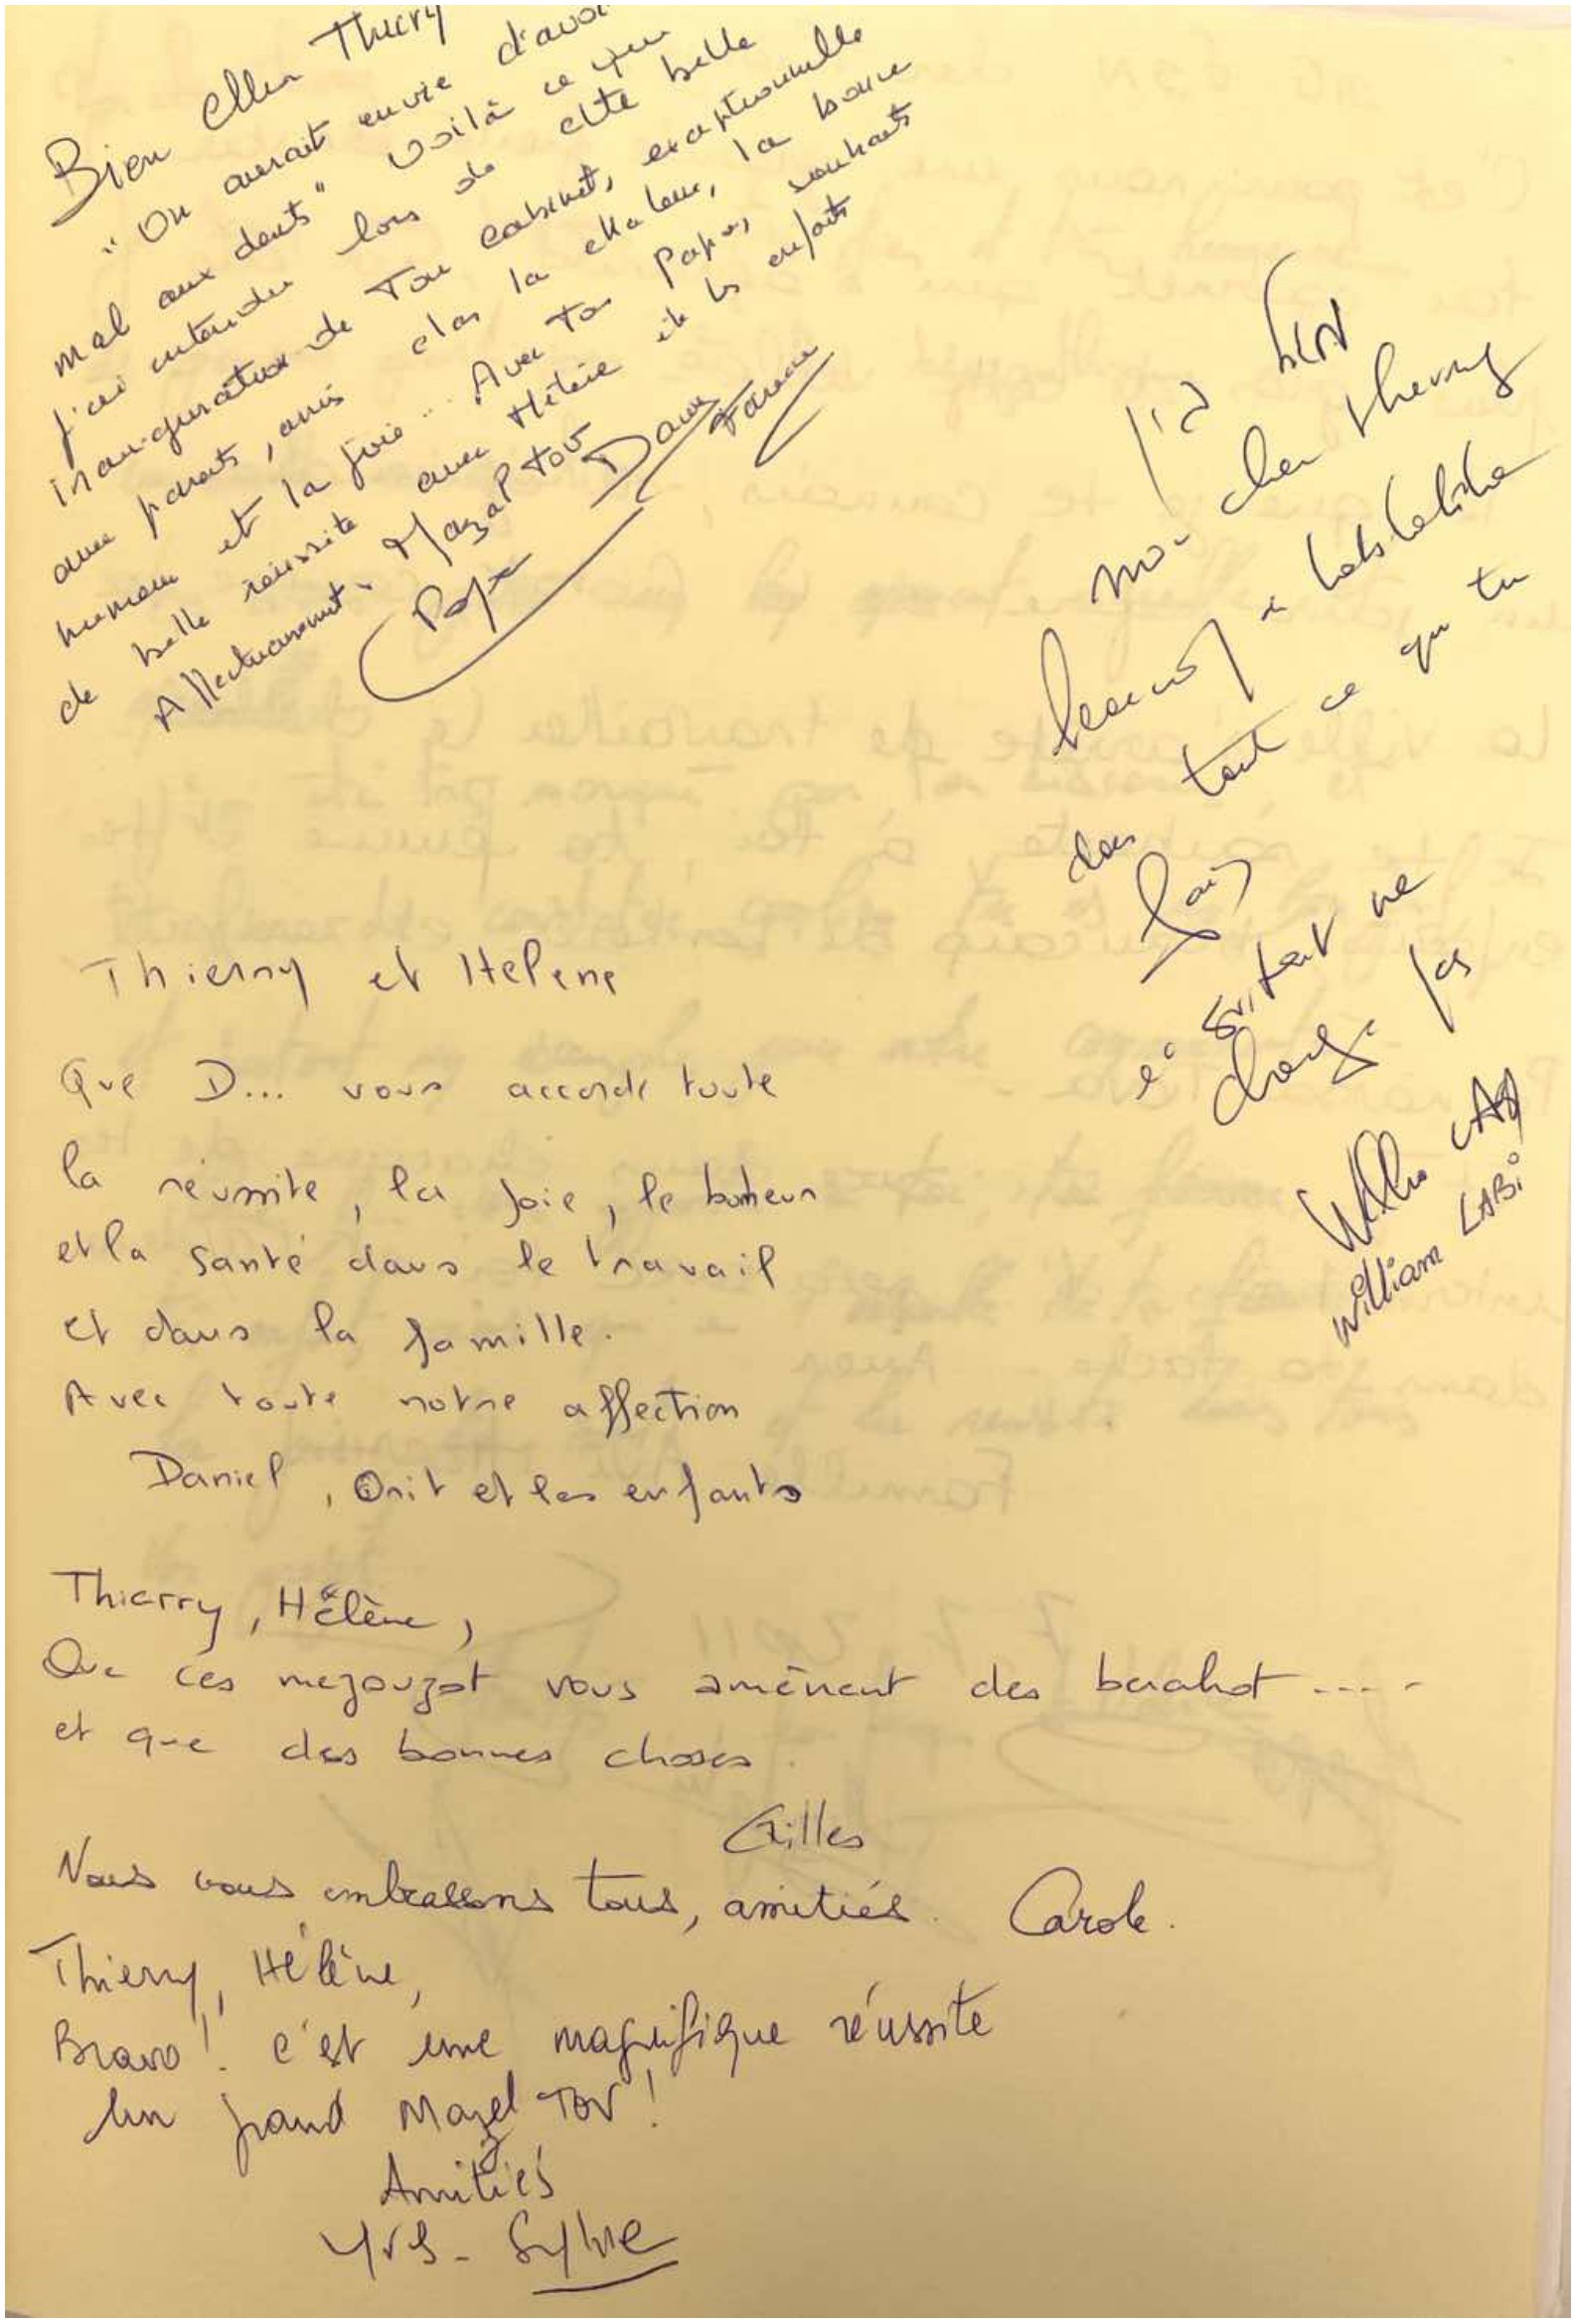 Bien cher Thierry
"On aurait envie d'avoir
mal aux dents" Voilà ce que
j'ai entendu lors de cette belle
inauguration de Ton cabinet, exceptionnelle
avec parents, amis dans la chaleur, la bonne
humeur et la joie... Avec Ton Papa, souhaits
de belle réussite avec Hélène et les enfants
Affectueusement. Mazal tov
mon cher Thierry
beaucoup de hatslakha
dans tout ce que tu
fais
et surtout ne
change pas
William LABi
Thierry et Hélène
Que D... vous accorde toute
la réussite, la joie, le bonheur
et la santé dans le travail
et dans la famille.
Avec toute notre affection
Daniel, Orit et les enfants
Thierry, Hélène,
Que ces mezouzot vous amènent des berahot ....-
et que des bonnes choses.
Gilles
Nous vous embrassons tous, amitiés. Carole.
Thierry, Hélène,
Bravo! c'est une magnifique réussite
Un grand Mazel Tov!
Amitiés
Yves - Sylvie